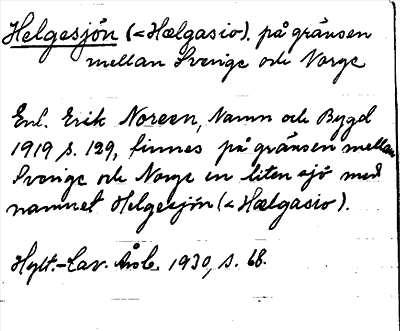 Helgesjön (< Hælgasio). på gränsen
mellan Sverige och Norge
Enl. Erik Noreen, Namn och Bygd
1919 s. 129, finnes på gränsen mellan
Sverige och Norge en liten sjö med
namnet Helgesjön (< Hælgasio).
Hylt.-Cav. Årsb. 1930, s. 68.